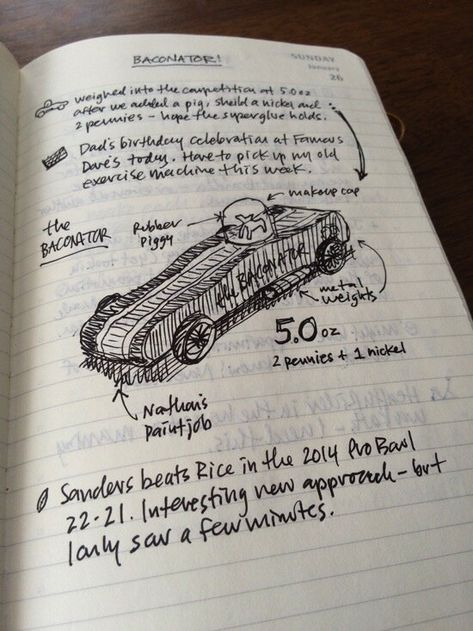 BACONATOR!
SUNDAY
January
26
weighed into the competition at 5.0 oz
after we added a pig, sheild a nickel and
2 pennies - hope the superglue holds.
Dad's birthday celebration at Famous
Dave's today. Have to pick up my old
exercise machine this week.
the
BACONATOR
Rubber
Piggy
makeup cap
the BACONATOR
metal
weights
5.0 oz
2 pennies + 1 nickel
Nathan's
paintjob
Sanders beats Rice in the 2014 Pro Bowl
22-21. Interesting new approach - but
I only saw a few minutes.